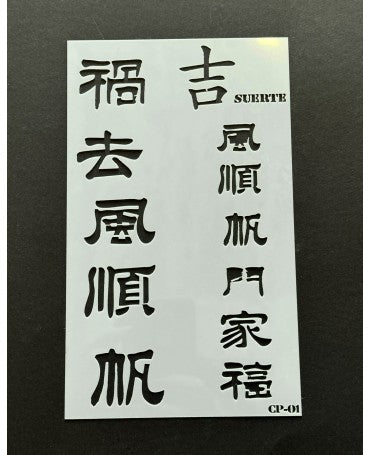 禍去風順帆
吉
SUERTE
風順帆門家福
CP-01